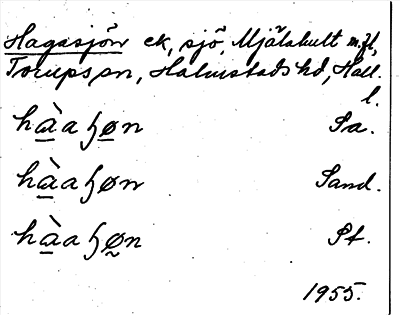 Hagasjön ek, sjö, Mjälahult m.fl,
Torups sn, Halmstads hd, Hall.
l.
hàaɧøn Sa.
hàaɧøn Sand.
hàaɧøn St.
1955.